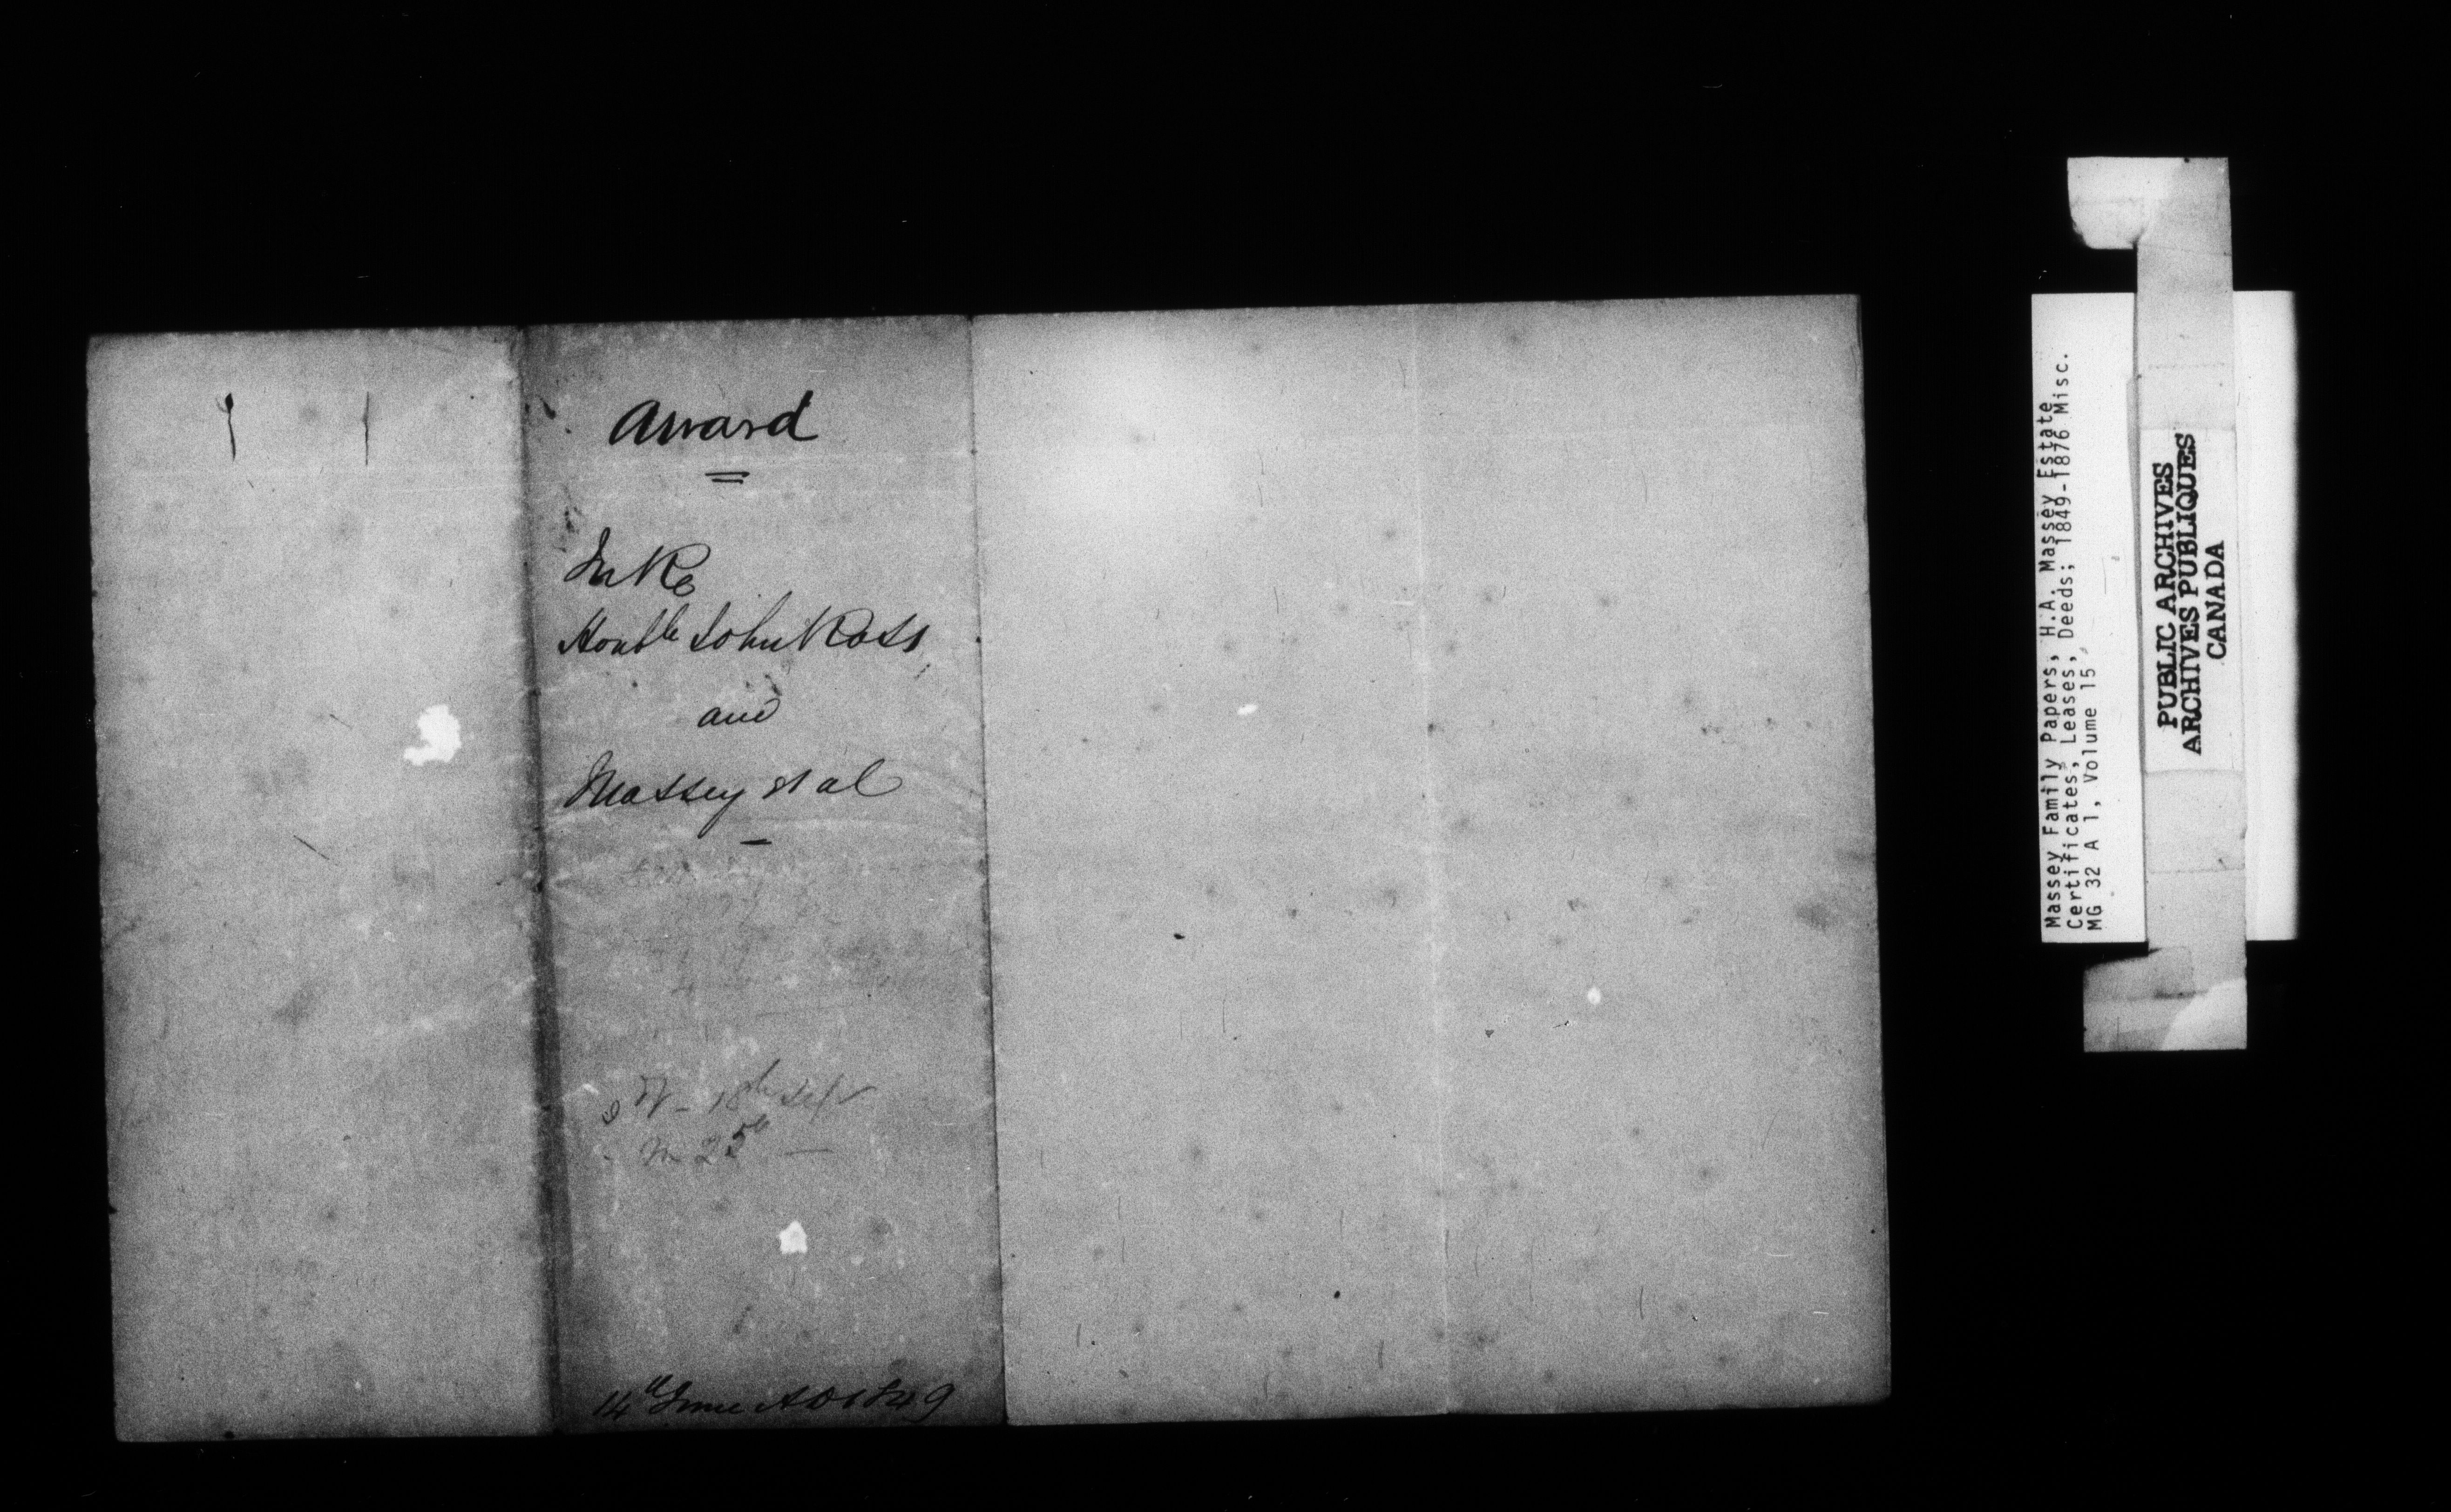 Award
In Re
Honble John Ross
and
Massey et al
18th Sept
25th
14th June AD 1849
Massey Family Papers, H.A. Massey Estate
Certificates, Leases, Deeds; 1849-1876 Misc.
MG 32 A 1, Volume 15
PUBLIC ARCHIVES
ARCHIVES PUBLIQUES
CANADA